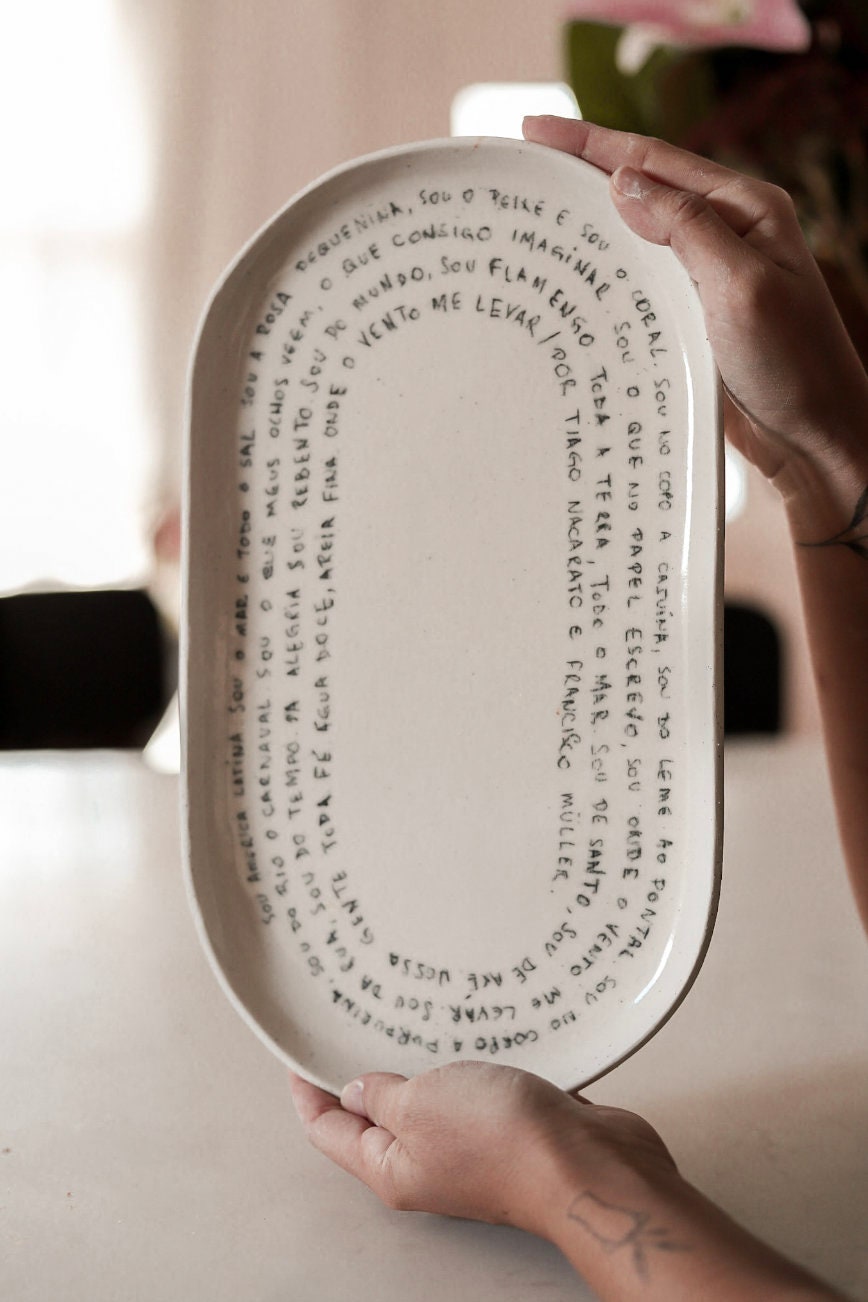 SOU AMÉRICA LATINA SOU O MAR E TODO O SAL SOU A ROSA PEQUENINA, SOU O PEIXE E SOU O CORAL. SOU NO COPO A CAJUÍNA, SOU DO LEME AO PONTAL SOU NO CORPO A PURPURINA.
SOU DO RIO O CARNAVAL SOU O QUE MEUS OLHOS VEEM, O QUE CONSIGO IMAGINAR. SOU O QUE NO PAPEL ESCREVO, SOU ONDE O VENTO ME LEVAR.
SOU DA RUA, SOU DO TEMPO. DA ALEGRIA SOU REBENTO. SOU DO MUNDO, SOU FLAMENGO TODA A TERRA, TODO O MAR. SOU DE SANTO, SOU DE AXÉ NOSSA
GENTE TODA FÉ ÁGUA DOCE, AREIA FINA ONDE O VENTO ME LEVAR / POR TIAGO NACARATO E FRANCISCO MÜLLER.